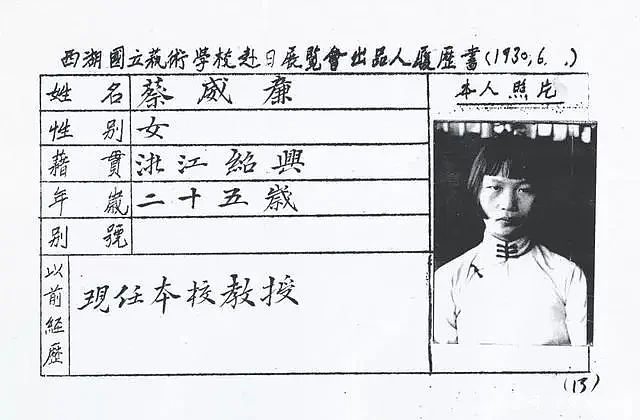 西湖國立藝術學校赴日展覽會出品人履歷書(1930,6. .)
姓名 蔡威廉
本人照片
性別 女
藉貫 浙江紹興
年歲 二十五歲
別號
以前經歷 現任本校教授
(13)